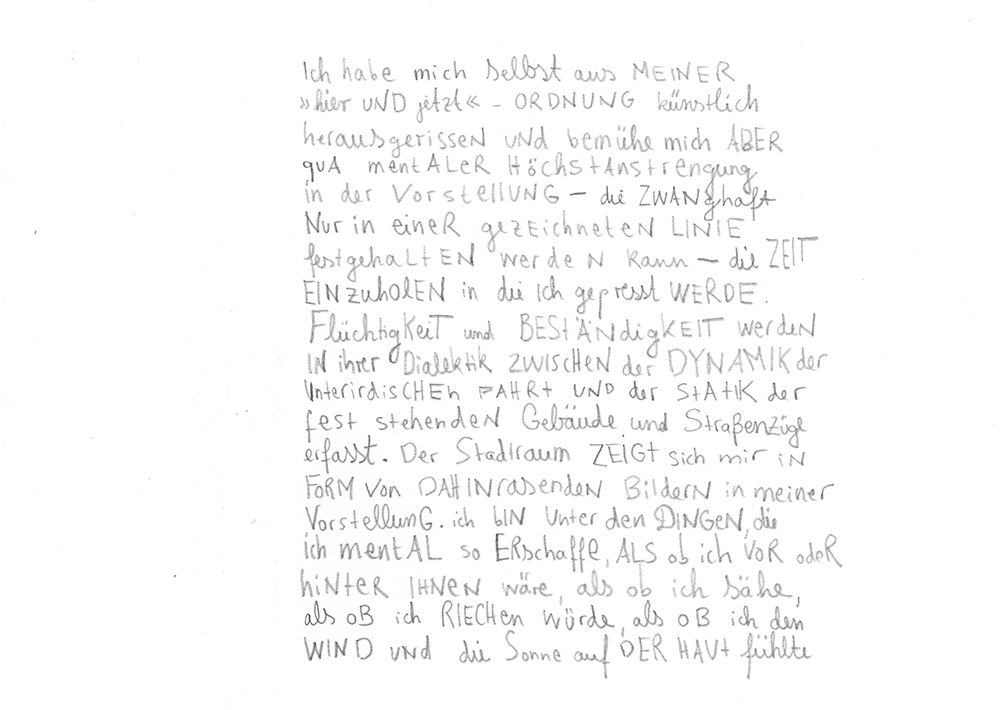 Ich habe mich selbst aus MEINER
»hier UND jetzt« – ORDNUNG künstlich
herausgerisseN UNd bemühe mich ABER
qUA mentALeR HöCHStANStrengung
in der VorstellUNG – die ZWANghaft
Nur in eineR gezEichneteN LINIE
festgehaLtEN werdeN kann – die ZEIT
EINzuholEN in die ich gepresst WERDE.
FlüchtigKeiT und BEStÄNdigKEIT werdeN
IN ihrer Dialektik ZWISCHEN der DYNAMIK der
UnterirdisCHEn FAHRt UND der StAtIK der
fest stehendeN Gebäude und Straßenzüge
erfasst. Der Stadtraum ZEIGt sich mir iN
FoRM Von DAHINrasendeN BildeRN in meiner
VorstelluNG. ich bIN Unter den DINGEN, die
ich mentAL so ERschaffe, ALS ob ich VoR odeR
hiNteR IHNeN wäre, als ob ich sähe,
als oB ich RIECHen würde, als oB ich den
WIND UNd die Sonne auf DER HAUt fühlte